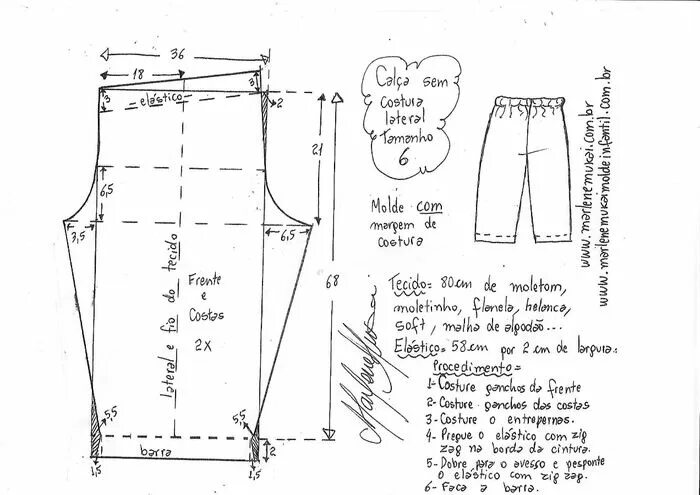 36
18
3
elástico
3
2
21
6,5
3,5
6,5
68
lateral e fio do tecido
Frente
e
Costas
2x
5,5
5,5
barra
2
1,5
1,5
Calça sem
costura
lateral
Tamanho
6
Molde com
margem de
costura
www.marlenemukai.com.br
www.marlenemukaimoldeinfantil.com.br
Tecido= 80cm de moletom,
moletinho, flanela, helanca,
soft, malha de algodão...
Elástico= 58cm por 2 cm de largura.
Procedimento=
1- Costure ganchos da frente
2- Costure ganchos das costas
3- Costure o entrepernas.
4- Pregue o elástico com zig
zag na borda da cintura.
5- Dobre para o avesso e pesponte
o elástico com zig zag.
6- Faça a barra.